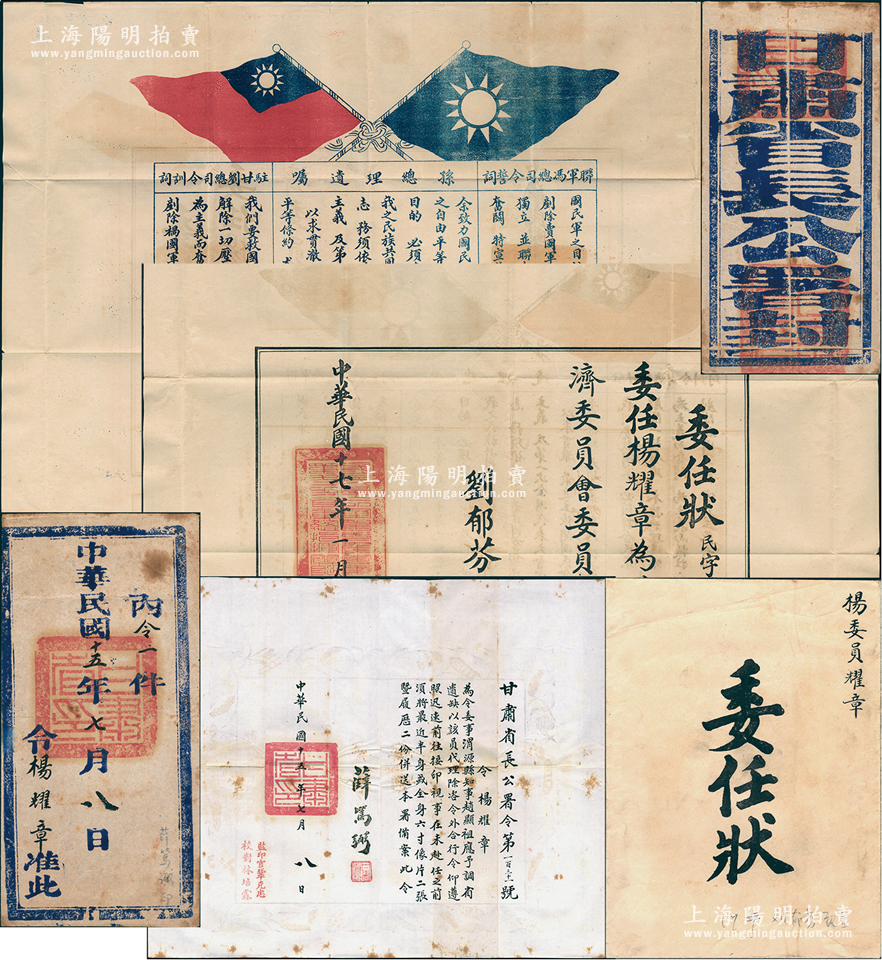 上海陽明拍賣
www.yangmingauction.com
甘肅省長公署封
聯軍馮總司令誓詞
國民軍之目
剷除賣國軍
獨立 並聯
奮鬪 特宣
孫總理遺囑
余致力國民
之自由平等
目的 必須
我之民族共同
志 務須依
主義 及第
以求貫澈
平等條約 尤
駐甘劉總司令訓詞
我們要救國
解除一切壓
為主義而奮
剷除禍國軍
委任狀
民字
委任楊耀章為
濟委員會委員
劉郁芬
中華民國十七年一月
上海陽明拍賣
www.yangmingauction.com
內令一件
中華民國十五年七月八日
令楊耀章准此
上海陽明拍賣
www.yangmingauction.com
甘肅省長公署令第一百六十號
令楊耀章
為令委事渭源縣知事趙顯祖應予調省
遺缺以該員代理除咨令外合行令仰遵
照迅速前往接印視事在未赴任之前
須將最近半身或全身六寸像片二張
暨履歷二份併送本署備案此令
薛篤弼
中華民國十五年七月八日
監印官
校對林培霖
楊委員耀章
委任狀
上海陽明拍賣
www.yangmingauction.com